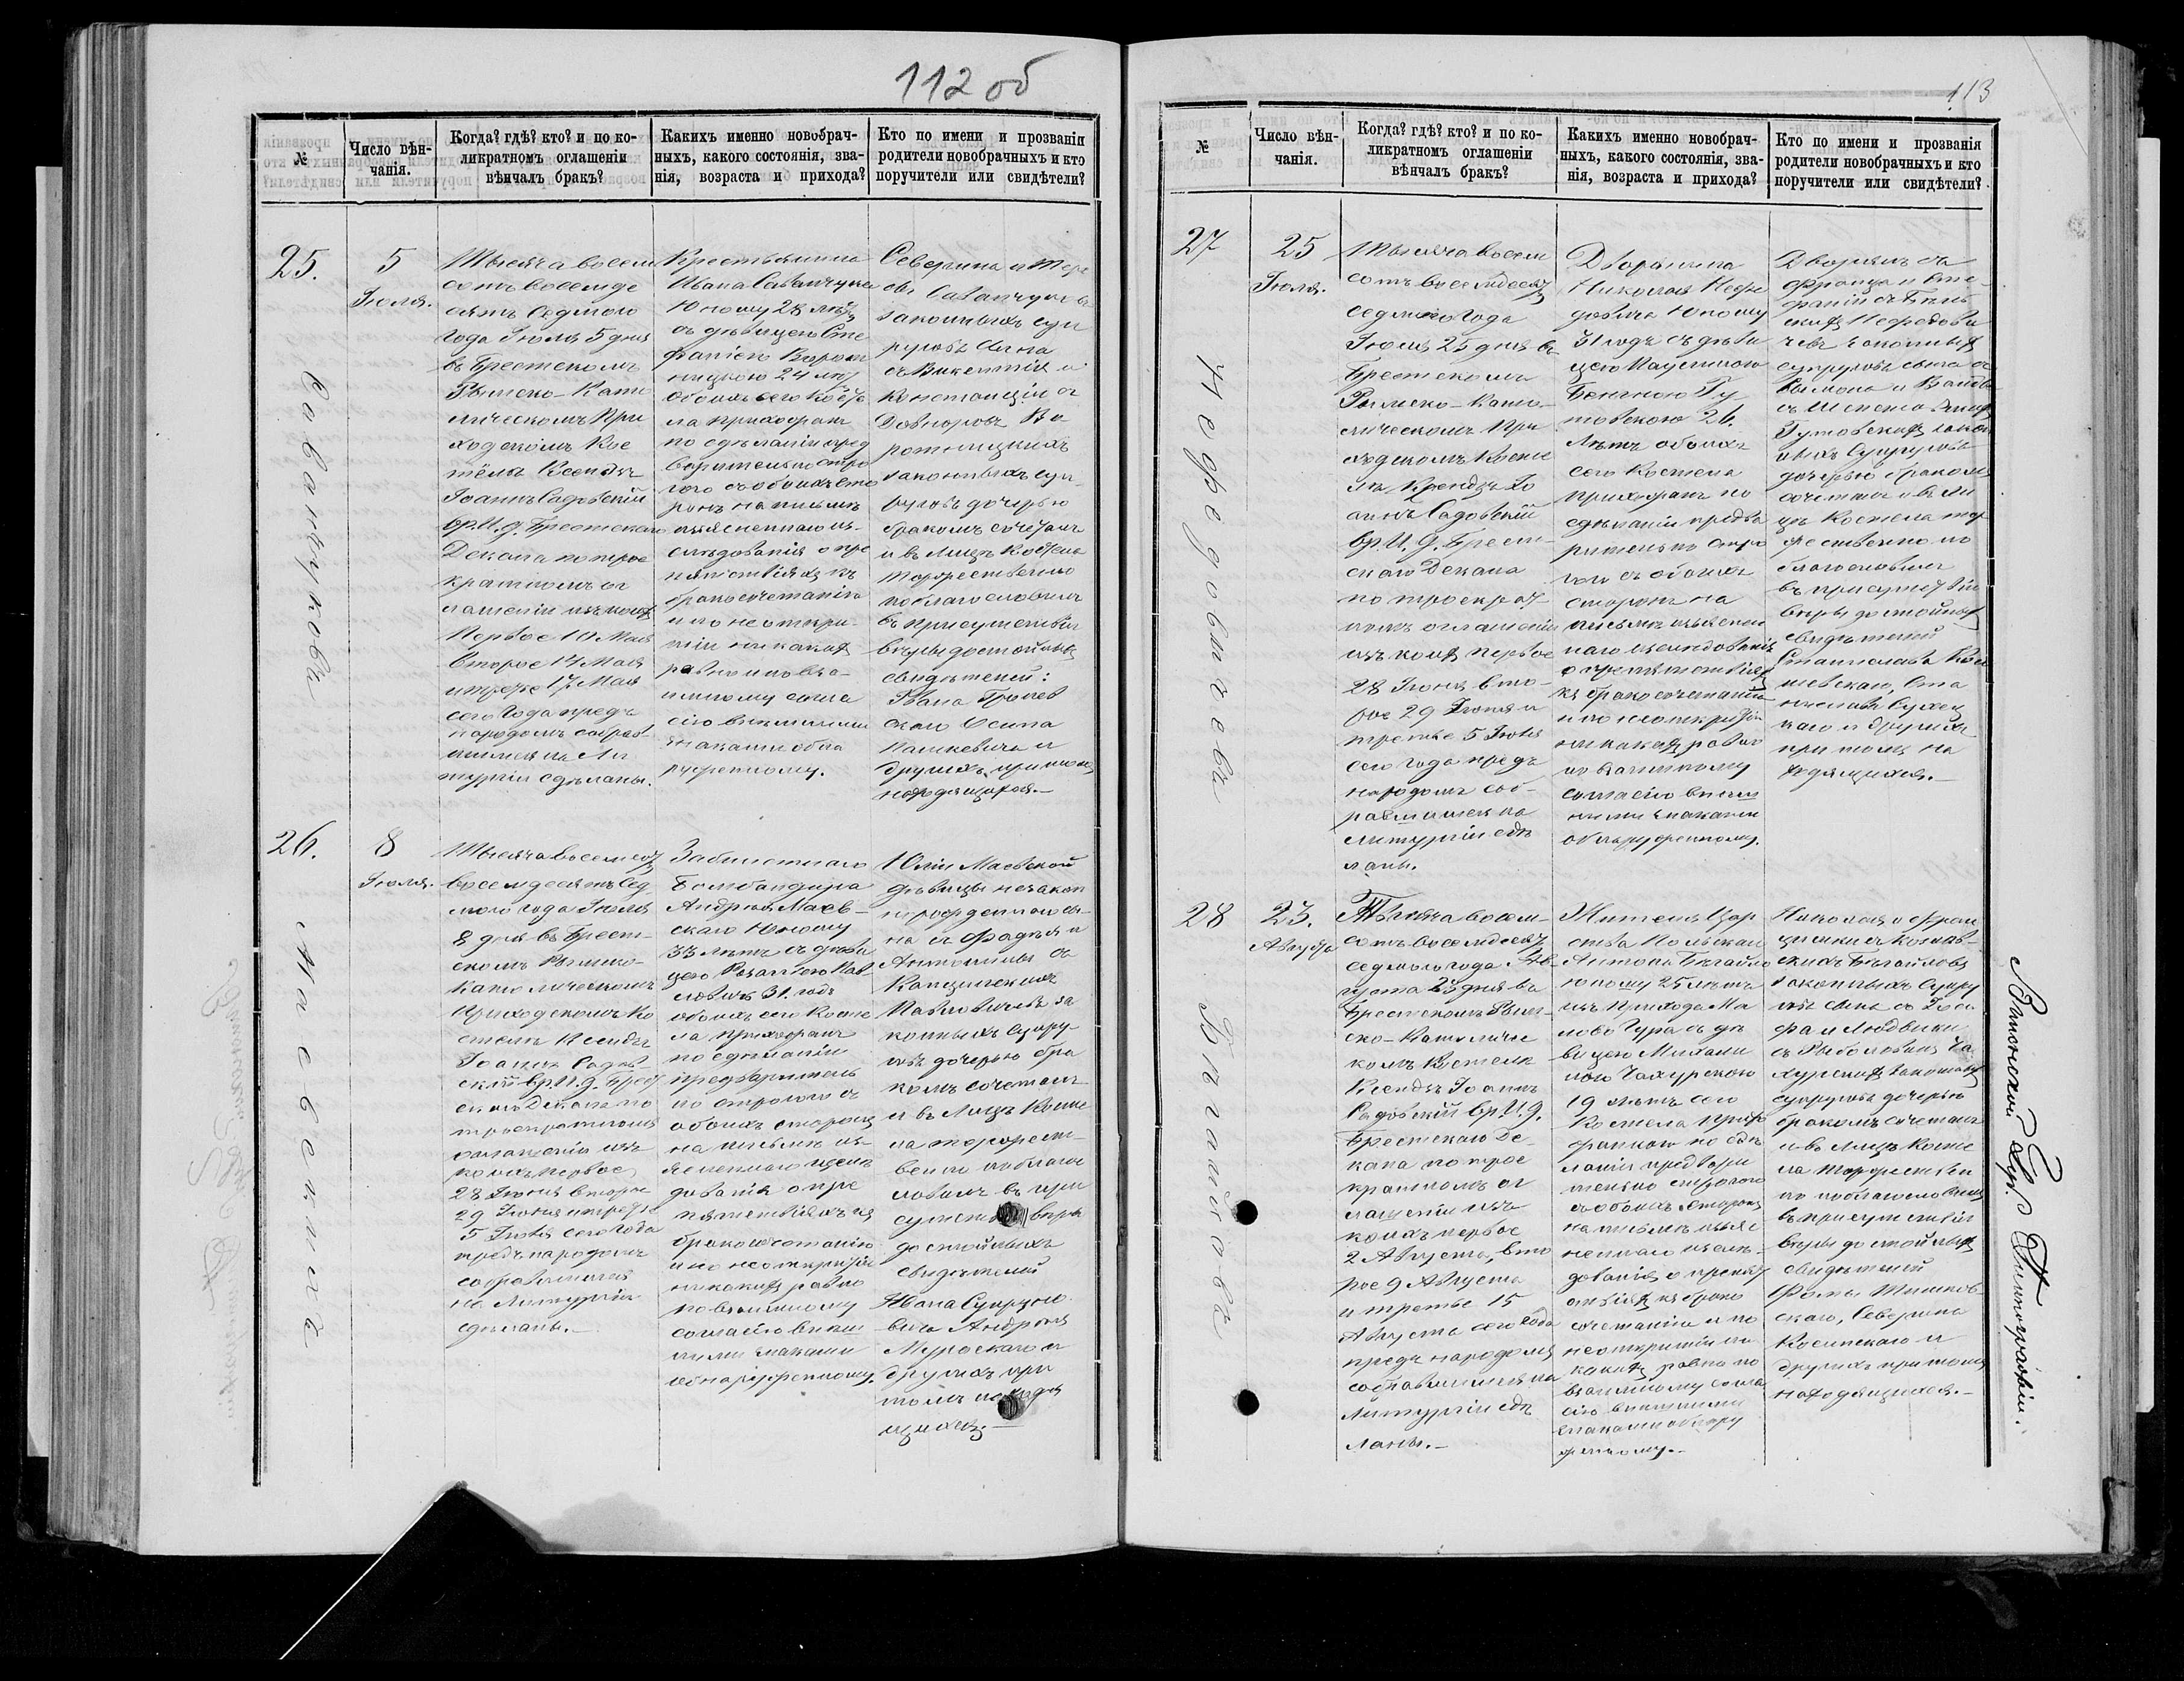 112 об
№
Число вѣн-
чанія.
Когда? гдѣ? кто? и по ко-
ликратномъ оглашеніи
вѣнчалъ бракъ?
Какихъ именно новобрач-
ныхъ, какого состоянія, зва-
нія, возраста и прихода?
Кто по имени и прозванія
родители новобрачныхъ и кто
поручители или свидѣтели?
25.
Савануковъ
5
Іюля.
Тысяча восем
сотъ восемьде
сятъ седмого
года Іюля 5 дня
въ Брестскомъ
Римско-Като
лическомъ При
ходскомъ Кос
тёлѣ Ксендзъ
Іоаннъ Садовскій
вр. И. д. Брестскаго
Декана по трое
кратномъ ог
лашеніи изъ коихъ
Первое 10 Мая
Второе 14 Мая
и третье 17 Мая
сего Года предъ
народомъ собрав
шимся на Ли
тургіи сдѣланы.
Крестьянина
Ивана Саванчука
Юношу 28 лѣтъ
съ дѣвицею Сте
фаніею Ворот
ницкою 24 лѣтъ
обоихъ сего Костё
ла прихожанъ
по сдѣланіи пред
варительно стро
гого съ обоихъ сто
ронъ на письмѣ
изъясненнаго из
слѣдованія о пре
пятствіяхъ къ
бракосочетанію
и по неоткры
тіи никакихъ
равно по вза-
имному согла
сію внешними
знаками обна
руженному.
Северина и Тере
сы Саванчуковъ
законныхъ суп
руговъ сына
съ Викентія и
Констанціи съ
Довнаровъ Во
ротницкихъ
законныхъ суп-
руговъ дочерью
бракомъ сочеталъ
и въ лицѣ Костела
торжественно
поблагословилъ
въ присутствіи
вѣры достойныхъ
свидѣтелей:
Ивана Гролев
скаго Осипа
Пашкевича и
другихъ при томъ
находящихся.—
26.
Маевскихъ
8
Іюля.
Тысяча восемсотъ
восемдесятъ сед
мого года Іюля
8 дня въ Брест-
скомъ Римско-
Католическомъ
Приходскомъ Ко
стелѣ Ксендзъ
Іоаннъ Садов
скій вр. И. д. Брест
скаго Декана по
троекратномъ
оглашеніи изъ
коихъ первое
28 Іюня второе
29 Іюня и третье
5 Іюля сего Года
предъ народомъ
собравшимся
на Литургіи
сдѣланы.—
Бомбандира
Андрея Маев-
скаго Юношу
33 лѣтъ съ дѣви
цею Розаліею Пав
ловичъ 31. годъ
обоихъ сего Косте
ла прихожанъ
по сдѣланіи
предваритель
но строгого съ
обоихъ сторонъ
на письмѣ изъ-
ясненнаго изслѣ
дованія о пре
пятствіяхъ къ
бракосочетанію
и по неоткрытіи
никакихъ равно
по взаимному
согласію внеш
ними знаками
обнаруженному.
Юліи Маевской
дѣвицы незакон
норожденнаго сы-
на съ Фадѣя и
Антонины съ
Павловичевъ за
конныхъ супру-
говъ дочерью бра
комъ сочеталъ
и въ лицѣ Косте
ла торжест-
венно поблагос
ловилъ въ при
вѣры
достойныхъ
свидѣтелей
Ивана Супруно
вича Андрея
Муровскаго и
другихъ при
томъ находя
щихся.—
113
№
Число вѣн-
чанія.
Когда? гдѣ? кто? и по ко-
ликратномъ оглашеніи
вѣнчалъ бракъ?
Какихъ именно новобрач-
ныхъ, какого состоянія, зва-
нія, возраста и прихода?
Кто по имени и прозванія
родители новобрачныхъ и кто
поручители или свидѣтели?
27
Нефедовичевъ
25
Іюля.
Тысяча восем
сотъ восемдесятъ
седмого Года
Іюля 25 дня въ
Брестскомъ
Римско-Като-
лическомъ При
ходскомъ Косте
лѣ Ксендзъ Іо
аннъ Садовскій
вр. И. д. Брест-
скаго Декана
по троекрат
номъ оглашеніи
изъ коихъ первое
28 Іюня вто-
рое 29 Іюня и
третье 5 Іюля
сего года предъ
народомъ соб-
равшимся на
литургіи сдѣ
ланы.
Дворянина
Николая Нефе
довича Юношу
31 годъ съ дѣви
цею Паулиною
Бенигною Гу
товскою 26.
лѣтъ обоихъ
сего Костела
прихожанъ по
сдѣланіи предва
рительно стро
гого съ обоихъ
сторонъ на
письмѣ изъяснен
наго изслѣдованія
о препятствіяхъ
къ бракосочетанію
и по неоткрытіи
никакихъ равно
по взаимному
согласію внеш
ними знаками
обнаруженному.
Дворянъ съ
Франца и Сте
фаніи съ Бѣль
скихъ Нефедови
чевъ законныхъ
супруговъ сына съ
Гутовскихъ закон
ныхъ супруговъ
дочерью бракомъ
сочеталъ и въ ли
цѣ Костела тор
жественно по
благословилъ
въ присутствіи
вѣры достойныхъ
свидѣтелей
Станислава
Ста
нислава Сухоц
каго и другихъ
при томъ на
ходящихся.—
28
23.
Августа
Тысяча восем-
сотъ восемдесятъ
седмого года Ав
густа 23 дня въ
Брестскомъ Рим-
ско-Католичес
комъ Костелѣ
Ксендзъ Іоаннъ
Садовскій вр. И. д.
Брестскаго Де-
кана по трое
кратномъ ог
лашеніи изъ
коихъ первое
2 Августа, вто
рое 9 Августа
и третье 15
Августа сего Года
предъ народомъ
собравшимся на
литургіи сдѣ
ланы.—
Жителя Цар
ства Польскаго
Антона
юношу 25 лѣтъ
изъ прихода Ма
лова Гура съ дѣ
вицею Михали
ною Чахурскою
19 лѣтъ сего
Костела прихо
жанкою по сдѣ
ланіи предвари
тельно строгого
съ обоихъ сторонъ
на письмѣ изъяс
неннаго изслѣ-
дованія о препят
ствіяхъ къ брако
сочетанію и по
неоткрытіи ни
какихъ равно по
взаимному согла
сію внешними
знаками обнару
женному.—
Николая и Фран
законныхъ супру
говъ сына съ Іоси
фа и Людвики
Ча
хурскихъ законныхъ
супруговъ дочерью
бракомъ сочеталъ
и въ лицѣ Косте
ла торжествен
но поблагословилъ
въ присутствіи
вѣры достойныхъ
свидѣтелей
Фомы Тишков-
скаго, Северина
Косинскаго и
другихъ при томъ
находящихся.—
Типографіи.